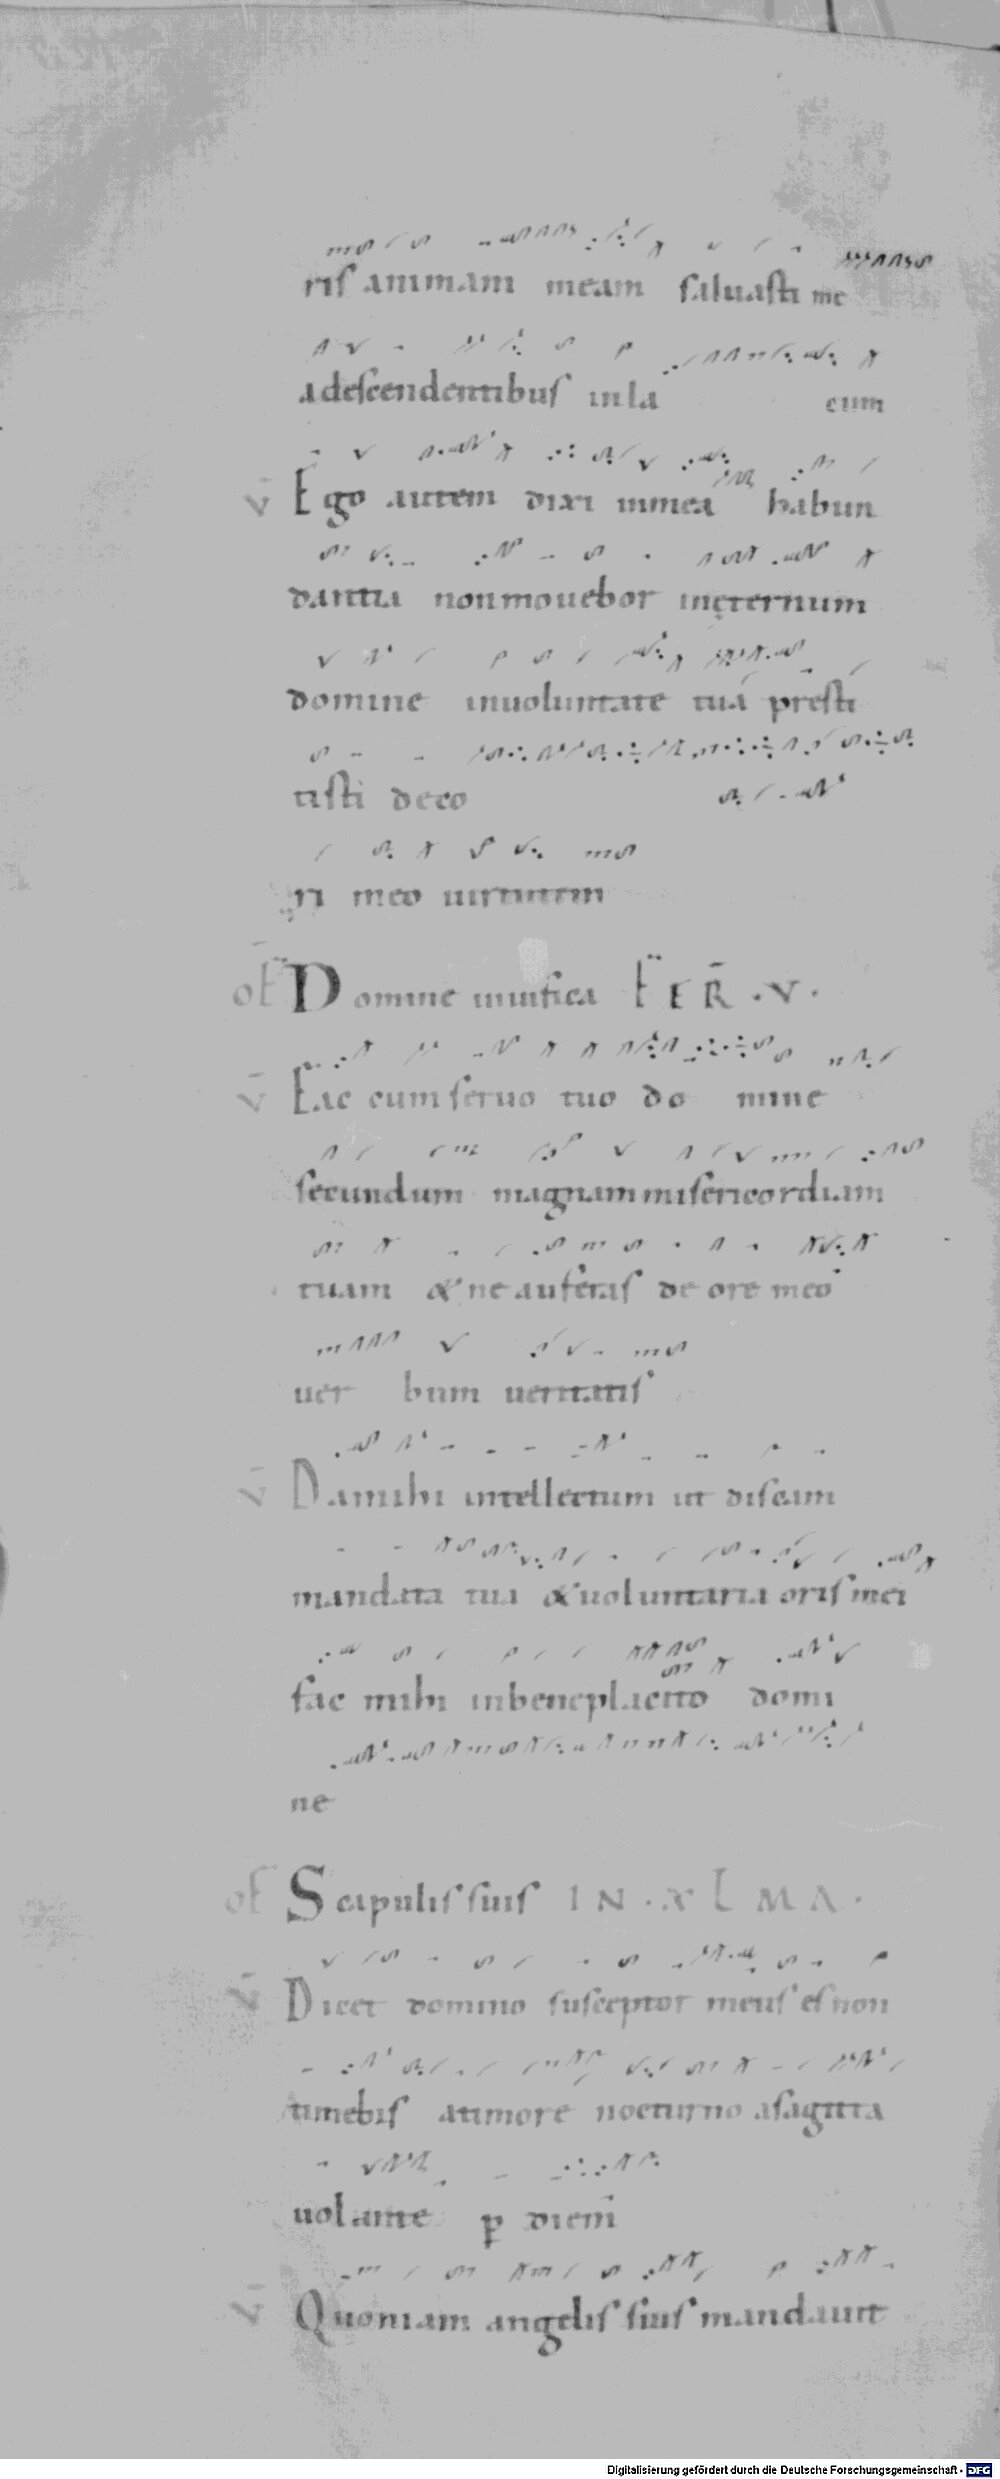 ris animam meam saluasti me
adescendentibus inla cum
v̄ Ego autem dixi inmea habun
dantia nonmouebor inęternum
domine inuoluntate tua presti
tisti deco
ri meo uirtutem
oF Domine uiuifica F ER̄ · V ·
v̄ Fac cum seruo tuo do mine
secundum magnam misericordiam
tuam & ne auferas de ore meo
uer bum ueritatis
v̄ Damihi intellectum ut discam
mandata tua & uoluntaria oris mei
fac mihi inbeneplacito domi
ne
oF Scapulis suis IN · XLMA ·
v̄ Dicet domino susceptor meus es non
timebis atimore nocturno asagitta
uolante p diem
v̄ Quoniam angelis suis mandauit
Digitalisierung gefördert durch die Deutsche Forschungsgemeinschaft - DFG